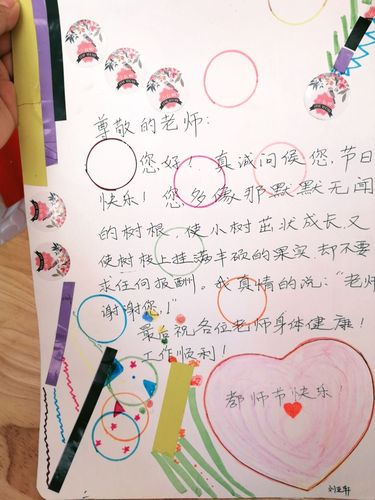 尊敬的老师:
您好!真诚问候您,节日
快乐!您多像那默默无闻
的树根,使小树茁状成长,又
使树枝上挂满丰硕的果实,却不要
求任何报酬。我真情的说:"老师
谢谢您!"
最后祝各位老师身体健康!
工作顺利!
教师节快乐!